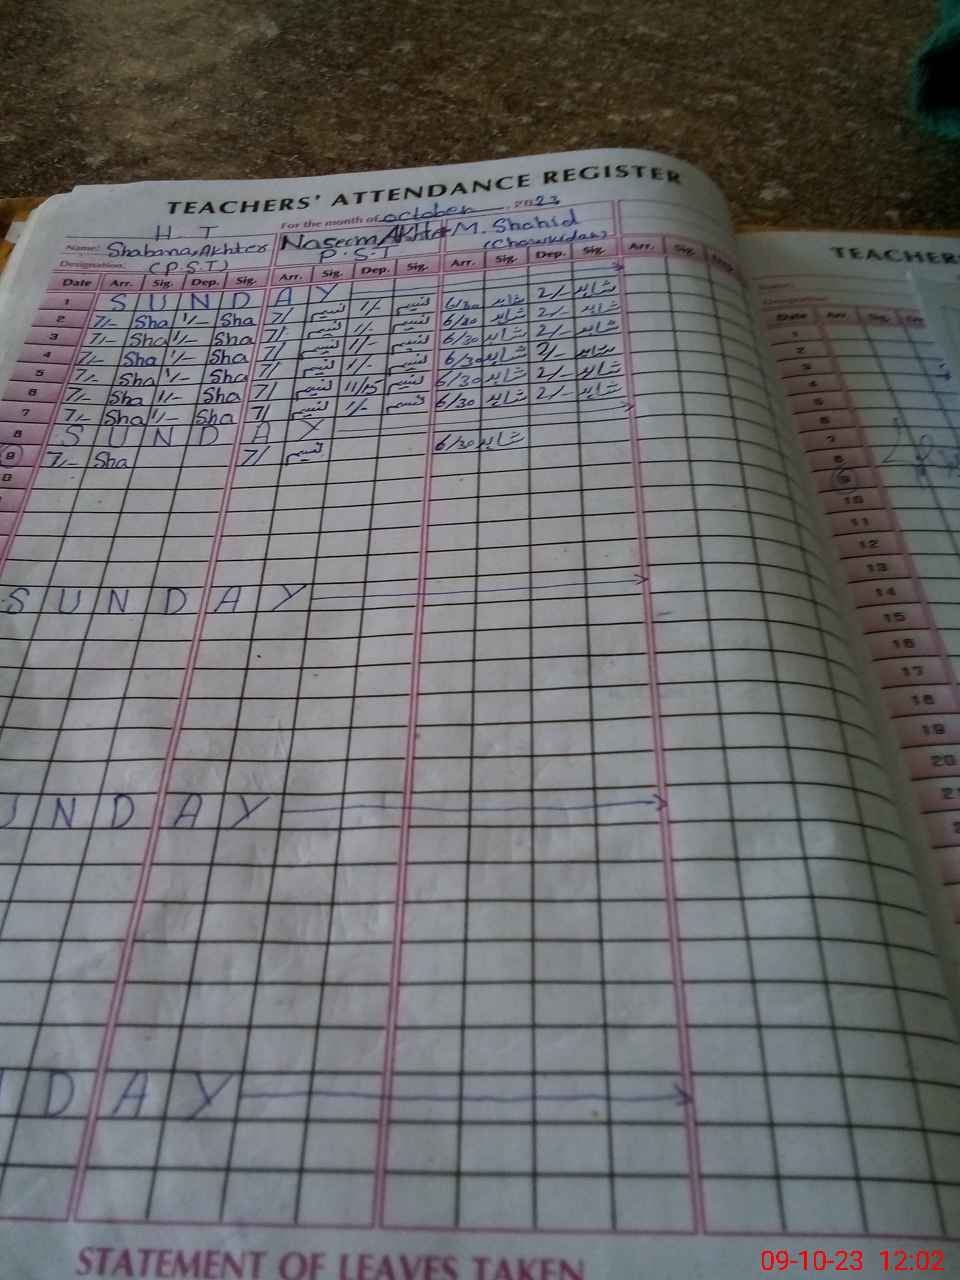 TEACHERS' ATTENDANCE REGISTER
For the month of October 2023
H T
Name: Shabana Akhter Naseem Akhter M. Shahid
Designation: (P.S.T) P.S.T (Chowkidar)
Date Arr. Sig. Dep. Sig. Arr. Sig. Dep. Sig. Arr. Sig. Dep. Sig. Arr. Sig.
1 S U N D A Y
2 7/- Sha 1/- Sha 7/ نسیم 1/- نسیم 6/30 شاہد 2/- شاہد
3 7/- Sha 1/- Sha 7/ نسیم 1/- نسیم 6/30 شاہد 2/- شاہد
4 7/- Sha 1/- Sha 7/ نسیم 1/- نسیم 6/30 شاہد 2/- شاہد
5 7/- Sha 1/- Sha 7/ نسیم 1/- نسیم 6/30 شاہد 2/- شاہد
6 7/- Sha 1/- Sha 7/ نسیم 11/15 نسیم 6/30 شاہد 2/- شاہد
7 7/- Sha 1/- Sha 7/ نسیم 1/- نسیم 6/30 شاہد 2/- شاہد
8 S U N D A Y
9 7/- Sha 7/ نسیم 6/30 شاہد
0
S U N D A Y
U N D A Y
D A Y
STATEMENT OF LEAVES TAKEN
TEACHERS
Name:
Designation
Date Arr. Sig.
1
2
3
4
5
6
7
8
9
10
11
12
13
14
15
16
17
18
19
20
09-10-23 12:02